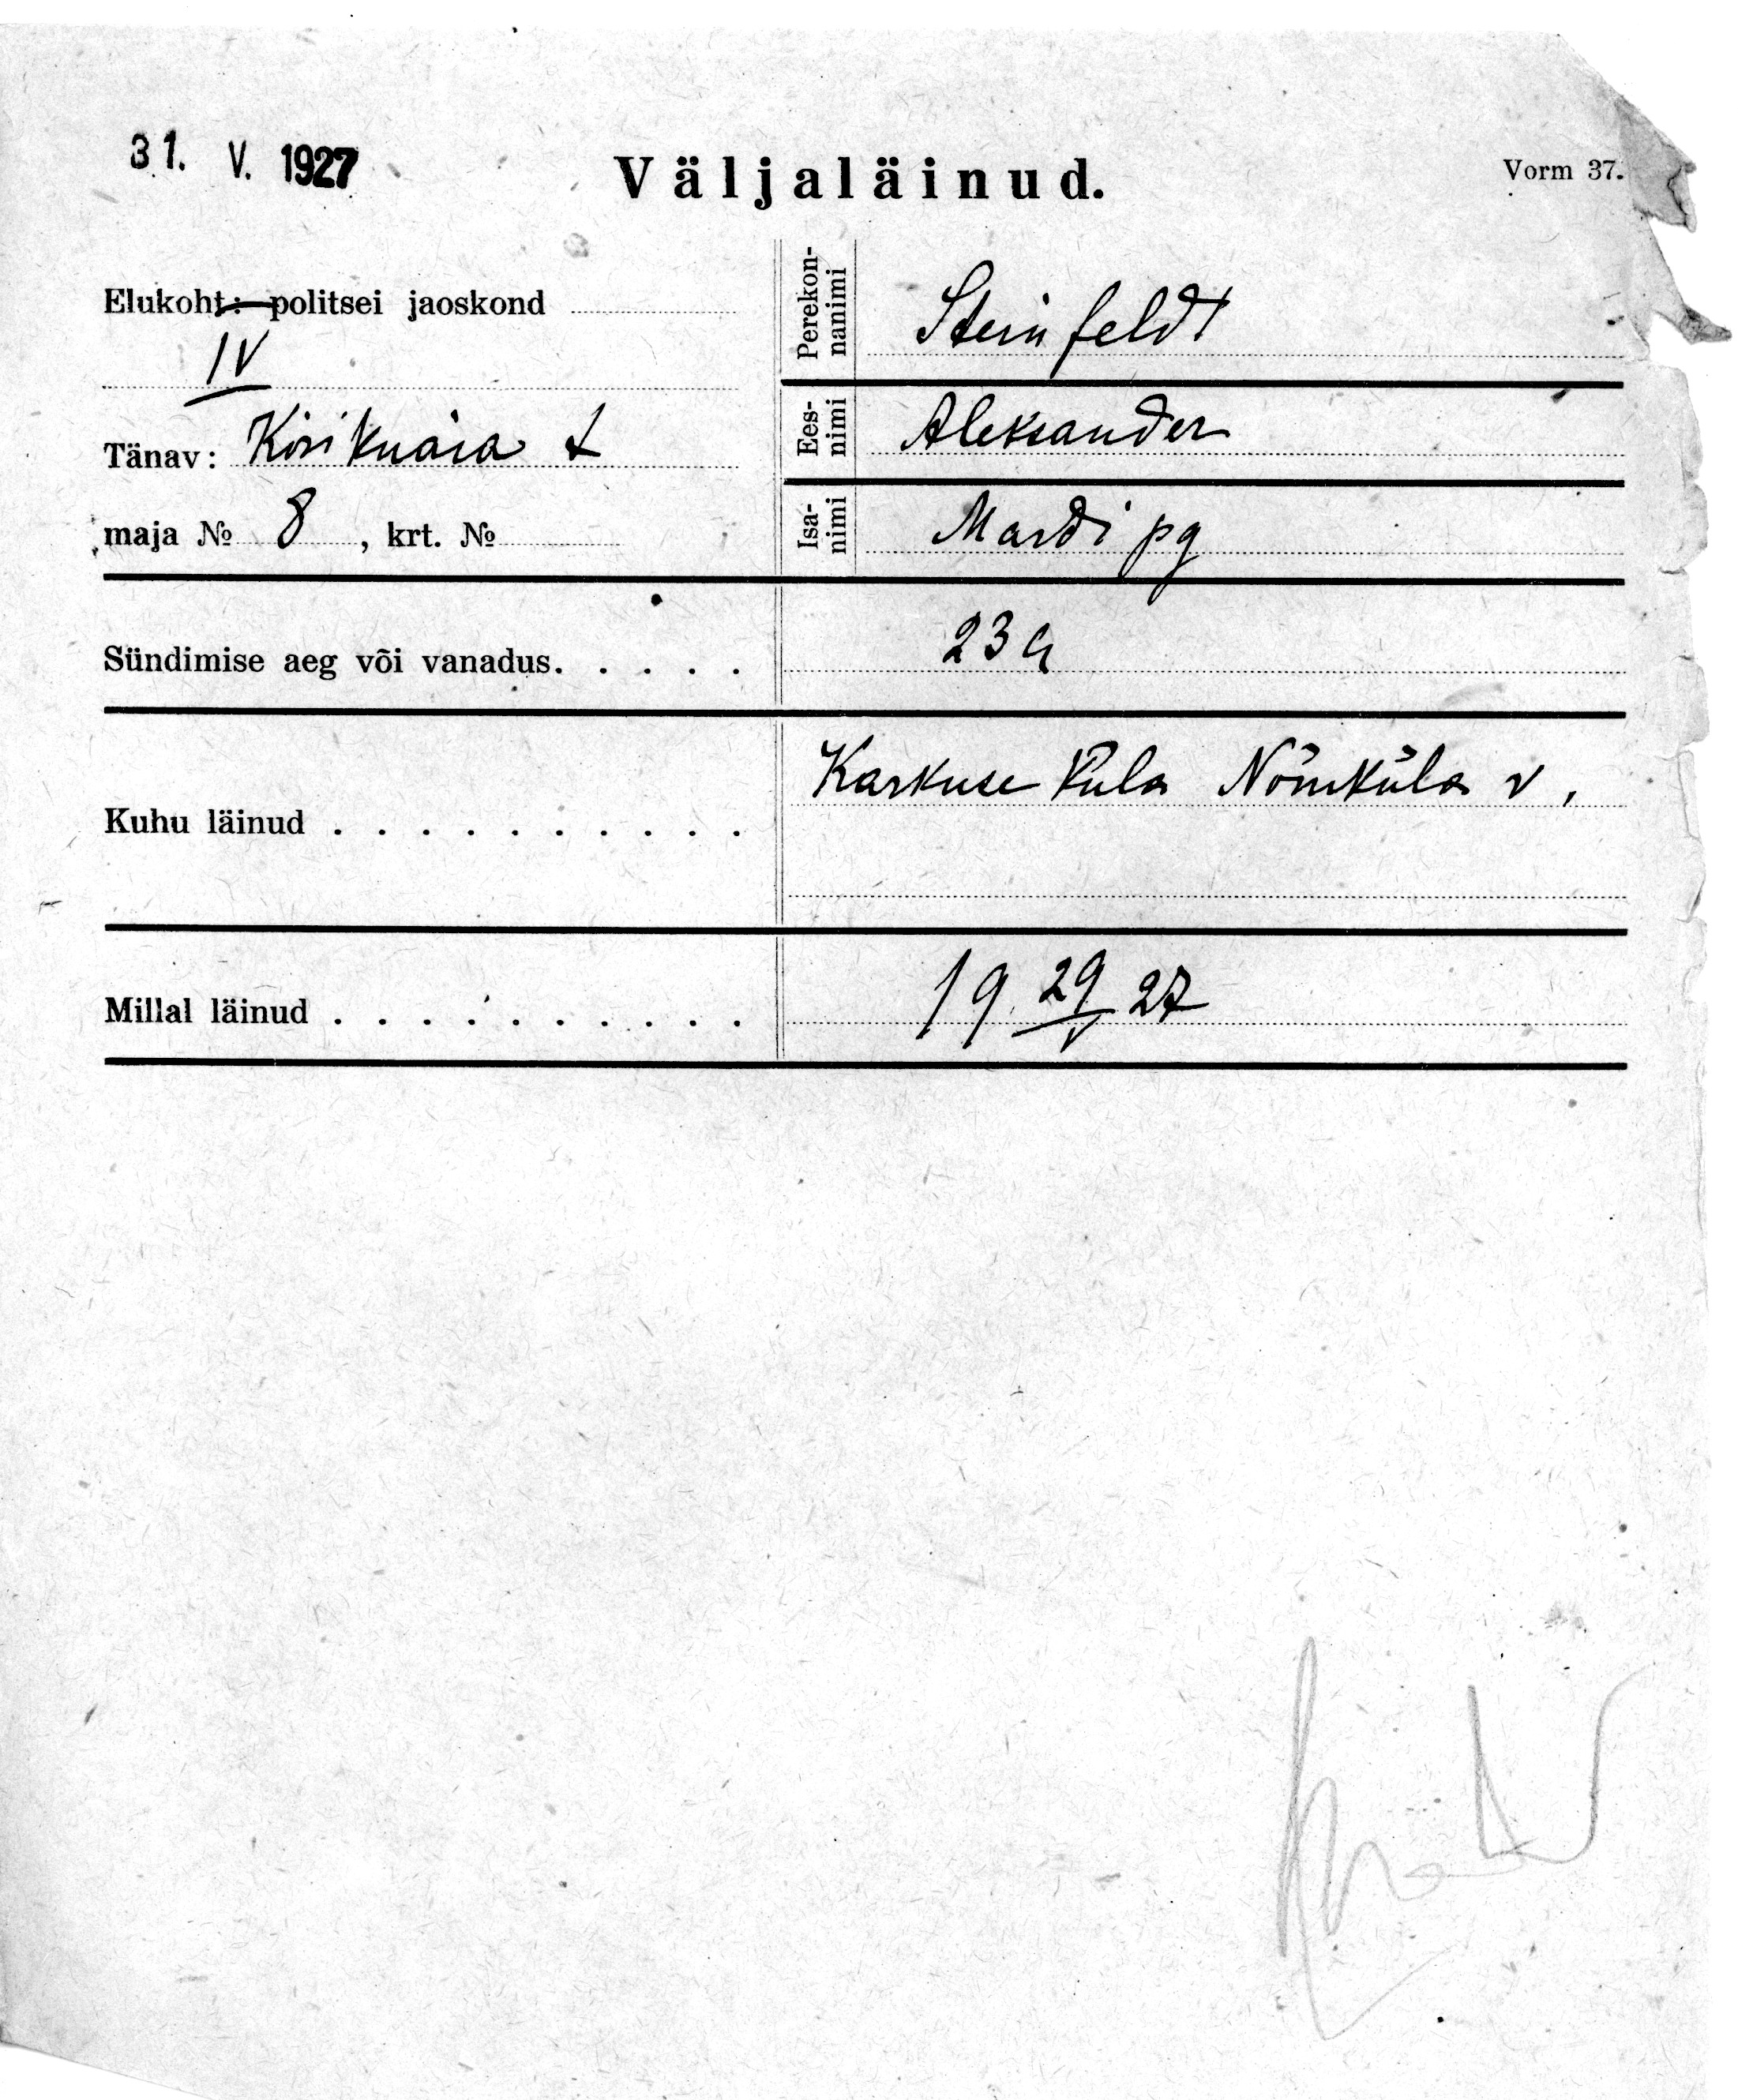 31. V. 1927
Väljaläinud.
Vorm 37.
Elukoht: politsei jaoskond
IV
Tänav: t
maja № 8, krt. №
Perekon-
nanimi
Steinfeldt
Ees-
nimi
Aleksander
Isa-
nimi
Mardi pg
Sündimise aeg või vanadus. . . . .
23 a
Kuhu läinud . . . . . . . . . .
Karkuse küla Nõmküla v.
Millal läinud . . . . . . . . . .
19 29/V 27